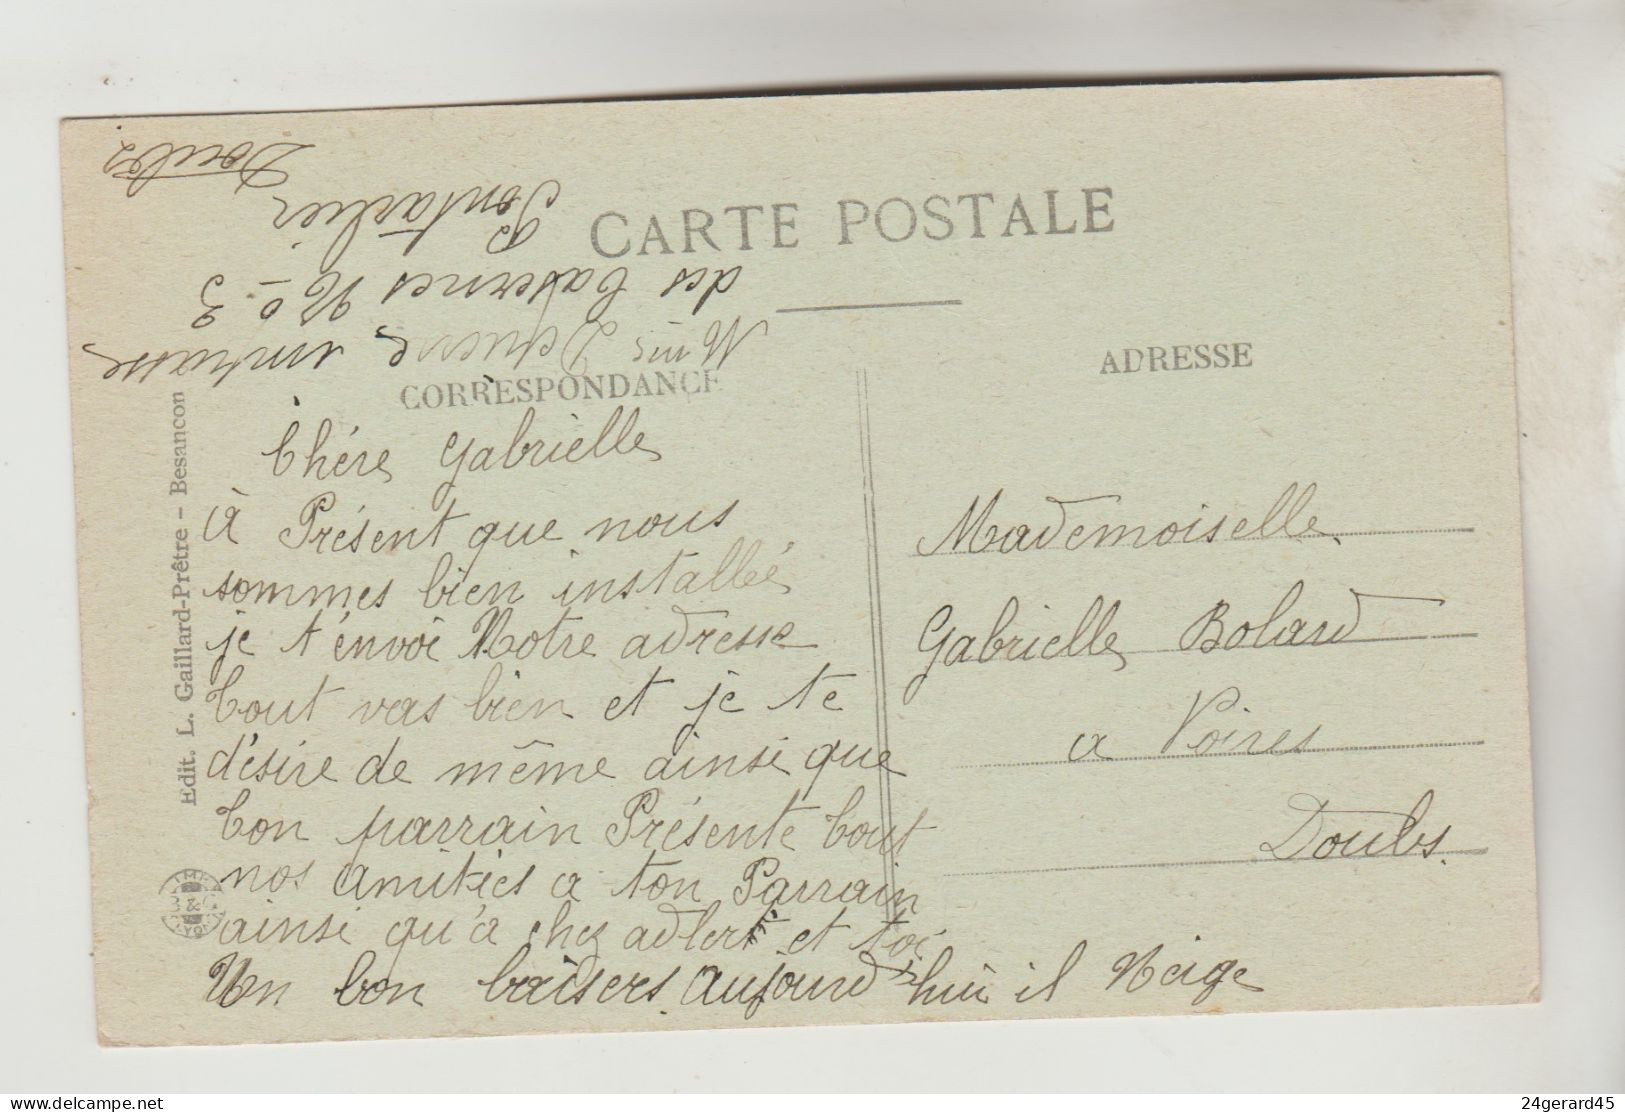 CARTE POSTALE
CORRESPONDANCE
ADRESSE
Chére Gabrielle
à Présent que nous
sommes bien installéé
je t'envoi Notre adresse
tout vas bien et je te
désire de même ainsi que
ton parrain Présente tout
nos amitiés a ton Parrain
ainsi qu'a chez adler et toi
Un bon baisers aujourd'hui il Neige
des Casernes No 3
Pontarlier
Doubs
Mademoiselle
Gabrielle Bolard
a Voires
Doubs.
Edit. L. Gaillard-Prêtre - Besancon
24gerard45